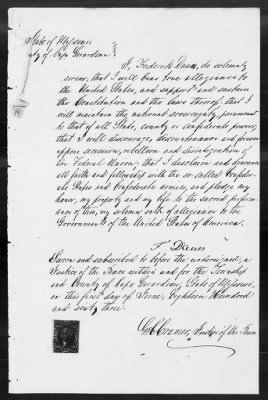 State of Missouri
County of Cape Girardeau
I, Frederick Daues, do solemnly
swear, that I will bear true allegiance to
the United States, and support and sustain
the Constitution and the laws thereof; that I
will maintain the national sovereignty, paramount
to that of all State, county or confederate powers;
that I will discourage, discountenance and forever
oppose secession, rebellion and disintegration of
the Federal Union; that I disclaim and denounce
all faith and fellowship with the so-called Confeder-
ate States and Confederate armies, and pledge my
honor, my property and my life to the sacred perform-
ance of this, my solemn oath of allegiance to the
Government of the United States of America.
F Daues
Sworn and subscribed to before the undersigned, a
Justice of the Peace within and for the Township
and County of Cape Girardeau, State of Missouri,
on this first day of June, Eighteen Hundred
and sixty three.
Justice of the Peace